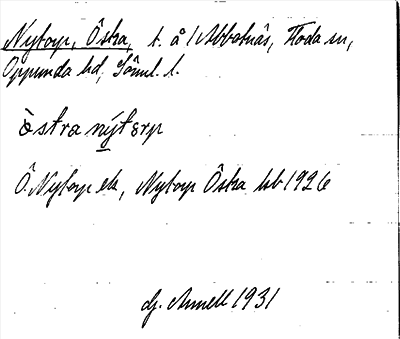 Nytorp, Östra, t. å 1 Abbotnäs, Floda sn,
Oppunda hd, Söml. l.
östra nýtɔrp
Ö. Nytorp ek, Nytorp Östra hb 1926
Gj. Annell 1931